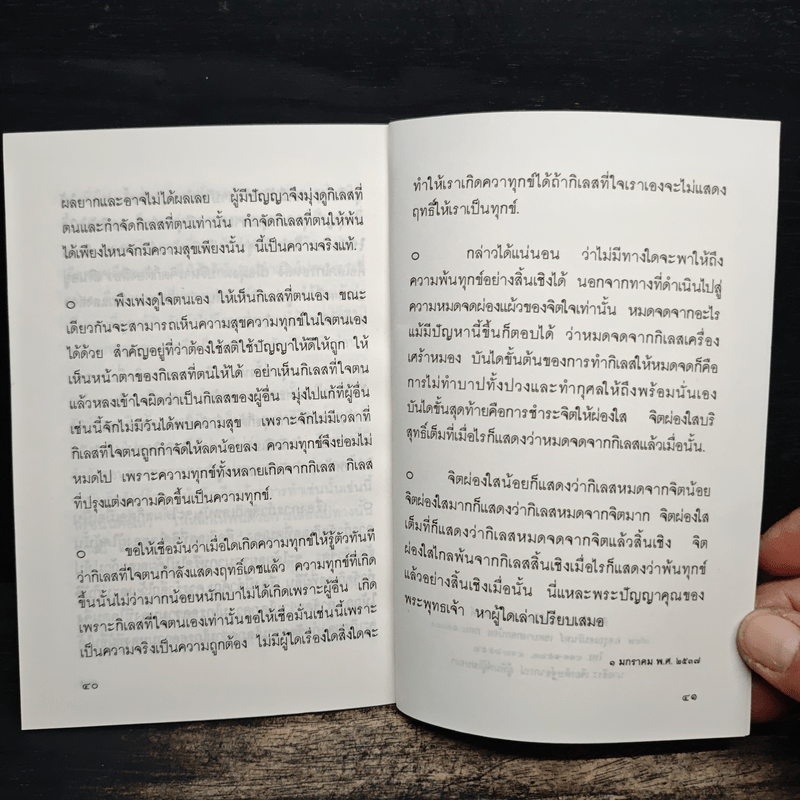 ผลยากและอาจไม่ได้ผลเลย ผู้มีปัญญาจึงมุ่งดูกิเลสที่
ตนและกำจัดกิเลสที่ตนเท่านั้น กำจัดกิเลสที่ตนให้พ้น
ได้เพียงไหนจักมีความสุขเพียงนั้น นี้เป็นความจริงแท้.
๐ พึงเพ่งดูใจตนเอง ให้เห็นกิเลสที่ตนเอง ขณะ
เดียวกันจะสามารถเห็นความสุขความทุกข์ในใจตนเอง
ได้ด้วย สำคัญอยู่ที่ว่าต้องใช้สติใช้ปัญญาให้ดีให้ถูก ให้
เห็นหน้าตาของกิเลสที่ตนให้ได้ อย่าเห็นกิเลสที่ใจตน
แล้วหลงเข้าใจผิดว่าเป็นกิเลสของผู้อื่น มุ่งไปแก้ที่ผู้อื่น
เช่นนี้จักไม่มีวันได้พบความสุข เพราะจักไม่มีเวลาที่
กิเลสที่ใจตนถูกกำจัดให้ลดน้อยลง ความทุกข์จึงย่อมไม่
หมดไป เพราะความทุกข์ทั้งหลายเกิดจากกิเลส กิเลส
ที่ปรุงแต่งความคิดขึ้นเป็นความทุกข์.
๐ ขอให้เชื่อมั่นว่าเมื่อใดเกิดความทุกข์ให้รู้ตัวทันที
ว่ากิเลสที่ใจตนกำลังแสดงฤทธิ์เดชแล้ว ความทุกข์ที่เกิด
ขึ้นนั้นไม่ว่ามากน้อยหนักเบาไม่ได้เกิดเพราะผู้อื่น เกิด
เพราะกิเลสที่ใจตนเองเท่านั้นขอให้เชื่อมั่นเช่นนี้เพราะ
เป็นความจริงเป็นความถูกต้อง ไม่มีผู้ใดเรื่องใดสิ่งใดจะ
๔๐
ทำให้เราเกิดควาทุกข์ได้ถ้ากิเลสที่ใจเราเองจะไม่แสดง
ฤทธิ์ให้เราเป็นทุกข์.
๐ กล่าวได้แน่นอน ว่าไม่มีทางใดจะพาให้ถึง
ความพ้นทุกข์อย่างสิ้นเชิงได้ นอกจากทางที่ดำเนินไปสู่
ความหมดจดผ่องแผ้วของจิตใจเท่านั้น หมดจดจากอะไร
แม้มีปัญหานี้ขึ้นก็ตอบได้ ว่าหมดจดจากกิเลสเครื่อง
เศร้าหมอง บันไดขั้นต้นของการทำกิเลสให้หมดจดก็คือ
การไม่ทำบาปทั้งปวงและทำกุศลให้ถึงพร้อมนั่นเอง
บันไดขั้นสุดท้ายคือการชำระจิตให้ผ่องใส จิตผ่องใสบริ
สุทธิ์เต็มที่เมื่อไรก็แสดงว่าหมดจดจากกิเลสแล้วเมื่อนั้น.
๐ จิตผ่องใสน้อยก็แสดงว่ากิเลสหมดจากจิตน้อย
จิตผ่องใสมากก็แสดงว่ากิเลสหมดจากจิตมาก จิตผ่องใส
เต็มที่ก็แสดงว่ากิเลสหมดจดจากจิตแล้วสิ้นเชิง จิต
ผ่องใสไกลพ้นจากกิเลสสิ้นเชิงเมื่อไรก็แสดงว่าพ้นทุกข์
แล้วอย่างสิ้นเชิงเมื่อนั้น นี่แหละพระปัญญาคุณของ
พระพุทธเจ้า หาผู้ใดเล่าเปรียบเสมอ
๑ มกราคม พ.ศ. ๒๕๓๗
๔๑